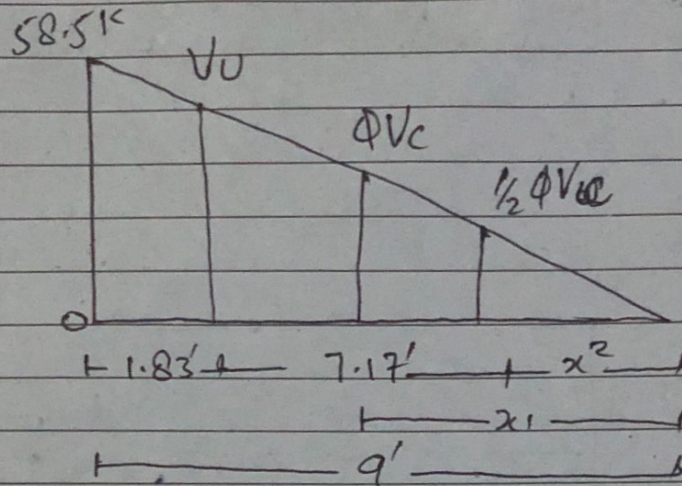 58.5K
VU
ΦVC
½ ΦVC
0
1.83' 7.17' x²
x1
9'